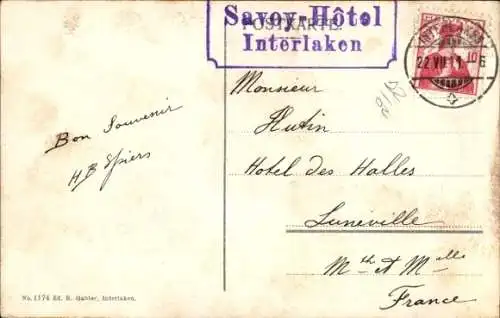 Savoy-Hôtel
POSTKARTE.
Interlaken
INTERLAKEN
22.VII.11. 6
10
Bon Souvenir
H B Spiers
Monsieur
Hutin
Hotel des Halles
Luneville
Mth et Mlle
France
No. 1374 Ed. R. Gabler, Interlaken.